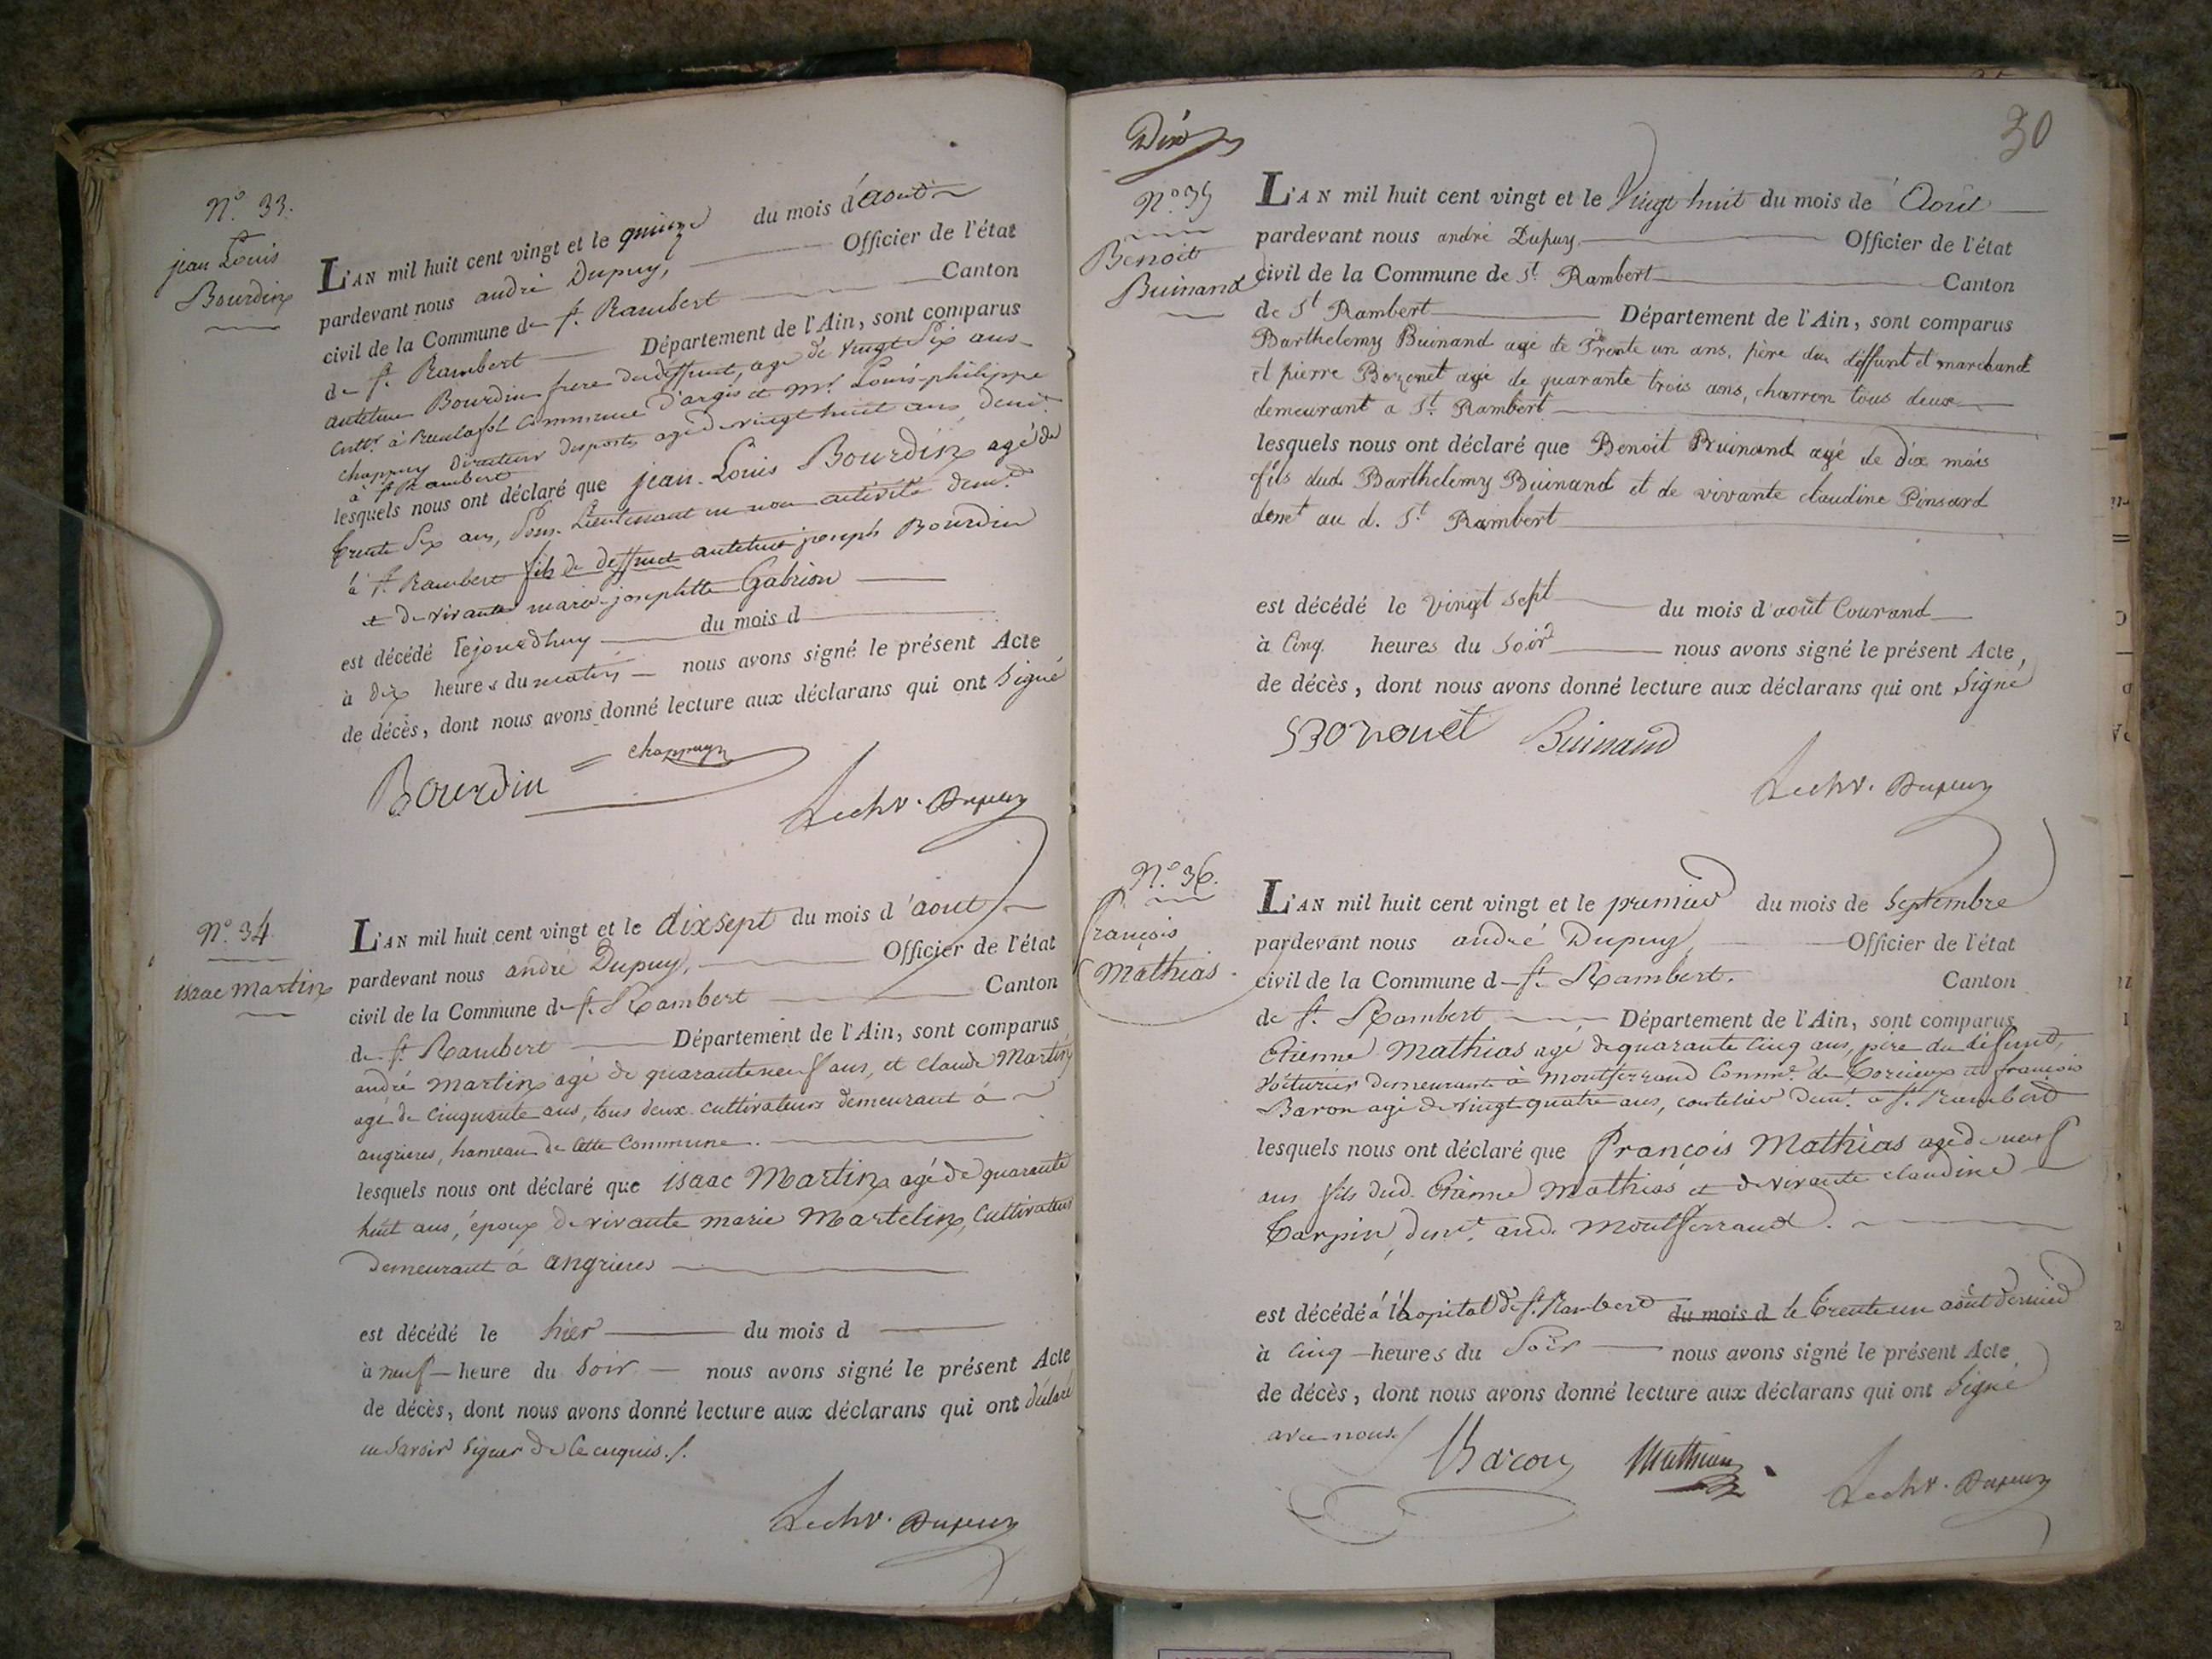 N.o 33.
jean Louis
Bourdin
L'AN mil huit cent vingt et le quinze du mois d'aout
pardevant nous andré Dupuy, Officier de l'état
civil de la Commune de st. Rambert Canton
de st. Rambert Département de l'Ain, sont comparus
Bourdin frere du deffunt, agé de vingt six ans
cultr. à Commune d'argis et mr. Louis-philippe
chappuy directeur des postes agé de vingt huit ans, demt.
à st Rambert
lesquels nous ont déclaré que jean-Louis Bourdin agé de
trente six ans, Sous-Lieutenant en non activité demt.
à st. Rambert fils de deffunt joseph Bourdin
et de vivante marie-josephtte Gabrion
est décédé le jourdhuy du mois d
à dix heures du matin nous avons signé le présent Acte
de décès, dont nous avons donné lecture aux déclarans qui ont signé
Bourdin chappuy
Lechr. Dupuy
N.o 34
isaac Martin
L'AN mil huit cent vingt et le dixsept du mois d'aout
pardevant nous andré Dupuy, Officier de l'état
civil de la Commune de st. Rambert Canton
de st. Rambert Département de l'Ain, sont comparus
andré Martin agé de quaranteneuf ans, et claude Martin
agé de cinquante ans, tous deux cultivateurs demeurant à
angrieres, hameau de cette Commune.
lesquels nous ont déclaré que isaac Martin agé de quarante
huit ans, époux de vivante marie Martelin, cultivateur
demeurant à angrieres
est décédé le hier du mois d
à neuf heure du soir nous avons signé le présent Acte
de décès, dont nous avons donné lecture aux déclarans qui ont déclaré
ne savoir signer de ce enquis./.
Lechr. Dupuy
30
Dix
N.o 35
Benoit
Buinand
L'AN mil huit cent vingt et le Vingt huit du mois de Août
pardevant nous andré Dupuy Officier de l'état
civil de la Commune de St. Rambert Canton
de St Rambert Département de l'Ain, sont comparus
Barthelemy Buinand age de Trente un ans, père du deffunt et marchand
et pierre Bozonet agé de quarante trois ans, charron tous deux
demeurant a St. Rambert
lesquels nous ont déclaré que Benoit Buinand agé de dix mois
fils dud. Barthelemy Buinand et de vivante claudine Pinsard
demt au d. St. Rambert
est décédé le vingt sept du mois d'août Courand
à Cinq heures du soir nous avons signé le présent Acte,
de décès, dont nous avons donné lecture aux déclarans qui ont Signé
Bozonet Buinand
Lechr. Dupuy
N.o 36.
françois
Mathias.
L'AN mil huit cent vingt et le premier du mois de septembre
pardevant nous andré Dupuy Officier de l'état
civil de la Commune de st. Rambert. Canton
de st. Rambert Département de l'Ain, sont comparus
Etienne Mathias agé de quarante cinq ans, père du défunt,
Voiturier demeurant à Montferrand Comme. de Torcieux et françois
Baron agé de vingt quatre ans, coutelier demt. a st. Rambert
lesquels nous ont déclaré que François Mathias agé de neuf
ans fils dud. Etienne Mathias et de vivante claudine
Carpin, demt. aud. Montferrand.
est décédé à l'hopital de st. Rambert du mois d le trente un août dernier
à cinq heures du Soir nous avons signé le présent Acte
de décès, dont nous avons donné lecture aux déclarans qui ont signé
avec nous.
Baron Mathias
Lechr. Dupuy